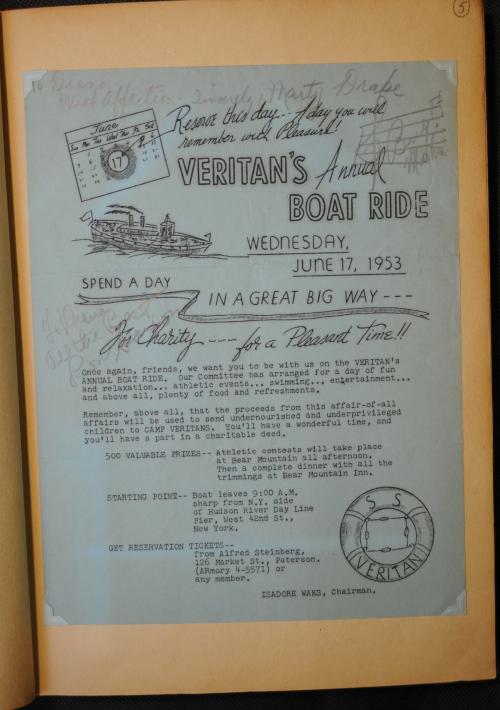 5
To
With Affection Sincerely, Marty Drake
Reserve this day... A day you will
remember with Pleasure!
June
Sun Mon Tue Wed Thu Fri Sat
17
VERITAN'S Annual
BOAT RIDE
WEDNESDAY,
JUNE 17, 1953
SPEND A DAY
IN A GREAT BIG WAY ---
For Charity ---- for a Pleasant Time!!
Once again, friends, we want you to be with us on the VERITAN's
ANNUAL BOAT RIDE. Our Committee has arranged for a day of fun
and relaxation... athletic events... swimming... entertainment...
and above all, plenty of food and refreshments.
Remember, above all, that the proceeds from this affair-of-all
affairs will be used to send undernourished and underprivileged
children to CAMP VERITANS. You'll have a wonderful time, and
you'll have a part in a charitable deed.
500 VALUABLE PRIZES-- Athletic contests will take place
at Bear Mountain all afternoon.
Then a complete dinner with all the
trimmings at Bear Mountain Inn.
STARTING POINT-- Boat leaves 9:00 A.M.
sharp from N.Y. side
of Hudson River Day Line
Pier, West 42nd St.,
New York.
GET RESERVATION TICKETS--
from Alfred Steinberg,
126 Market St., Paterson.
(ARmory 4-5571) or
any member.
S S
VERITAN
ISADORE WAKS, Chairman.